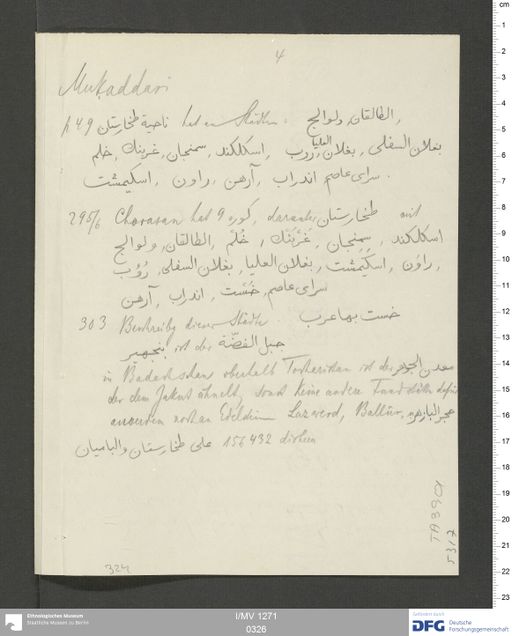 4
Mukaddasi
p 49 ناحية طخارستان hat an Städten: الطالقان, ولوالج
بغلان السفلى, بغلان العليا, روب, اسكلكند, سمنجان, غربنك, خلم
سراى عاصم, اندراب, آرهن, راون, اسكيمشت.
295/6 Chorasan hat 9 كوره, darunter طخارستان mit
اسكلكند, سمنجان, غربنك, خلم, الطالقان, ولوالج
راون, اسكيمشت, بغلان العليا, بغلان السفلى, رؤب
سراى عاصم, خست, اندراب, آرهن
303 Beschreibg dieser Städte. خست بها عرب
بنجهير ist der جبل الفضة
in Badachschan oberhalb Tocharistan ist der معدن الجوهر
der dem Jakut ähnelt, sonst keine andere Fundstätte dafür
ausserdem noch an Edelstein Lazwerd, Ballur, حجر البازهر
على طخارستان والباميان 156 432 dirhem
324
TA 6901
5317
Ethnologisches Museum
Staatliche Museen zu Berlin
I/MV 1271
0326
Gefördert durch
DFG Deutsche
Forschungsgemeinschaft
cm
1
2
3
4
5
6
7
8
9
10
11
12
13
14
15
16
17
18
19
20
21
22
23